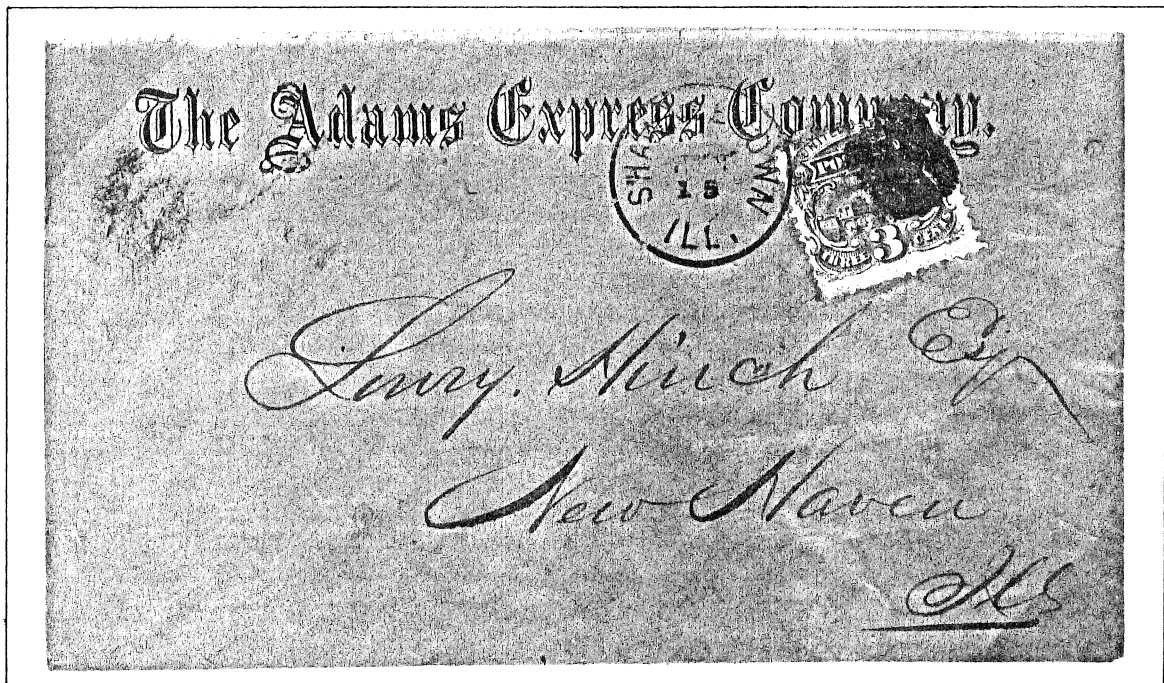 The Adams Express Company.
SHA WN
15
ILL.
THREE 3 CENTS
Lowry. Hinch Esq
New Haven
Ills